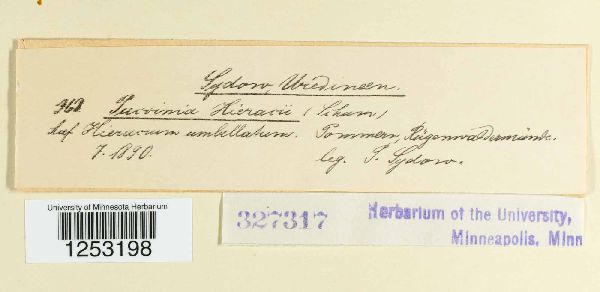 Sydow, Uredineen.
362. Puccinia Hieracii (Schum)
Auf Hieracium umbellatum. Pommern, Rügenwaldermünde.
7. 1890. leg. P. Sydow.
University of Minnesota Herbarium
1253198
327317
Herbarium of the University,
Minneapolis, Minn